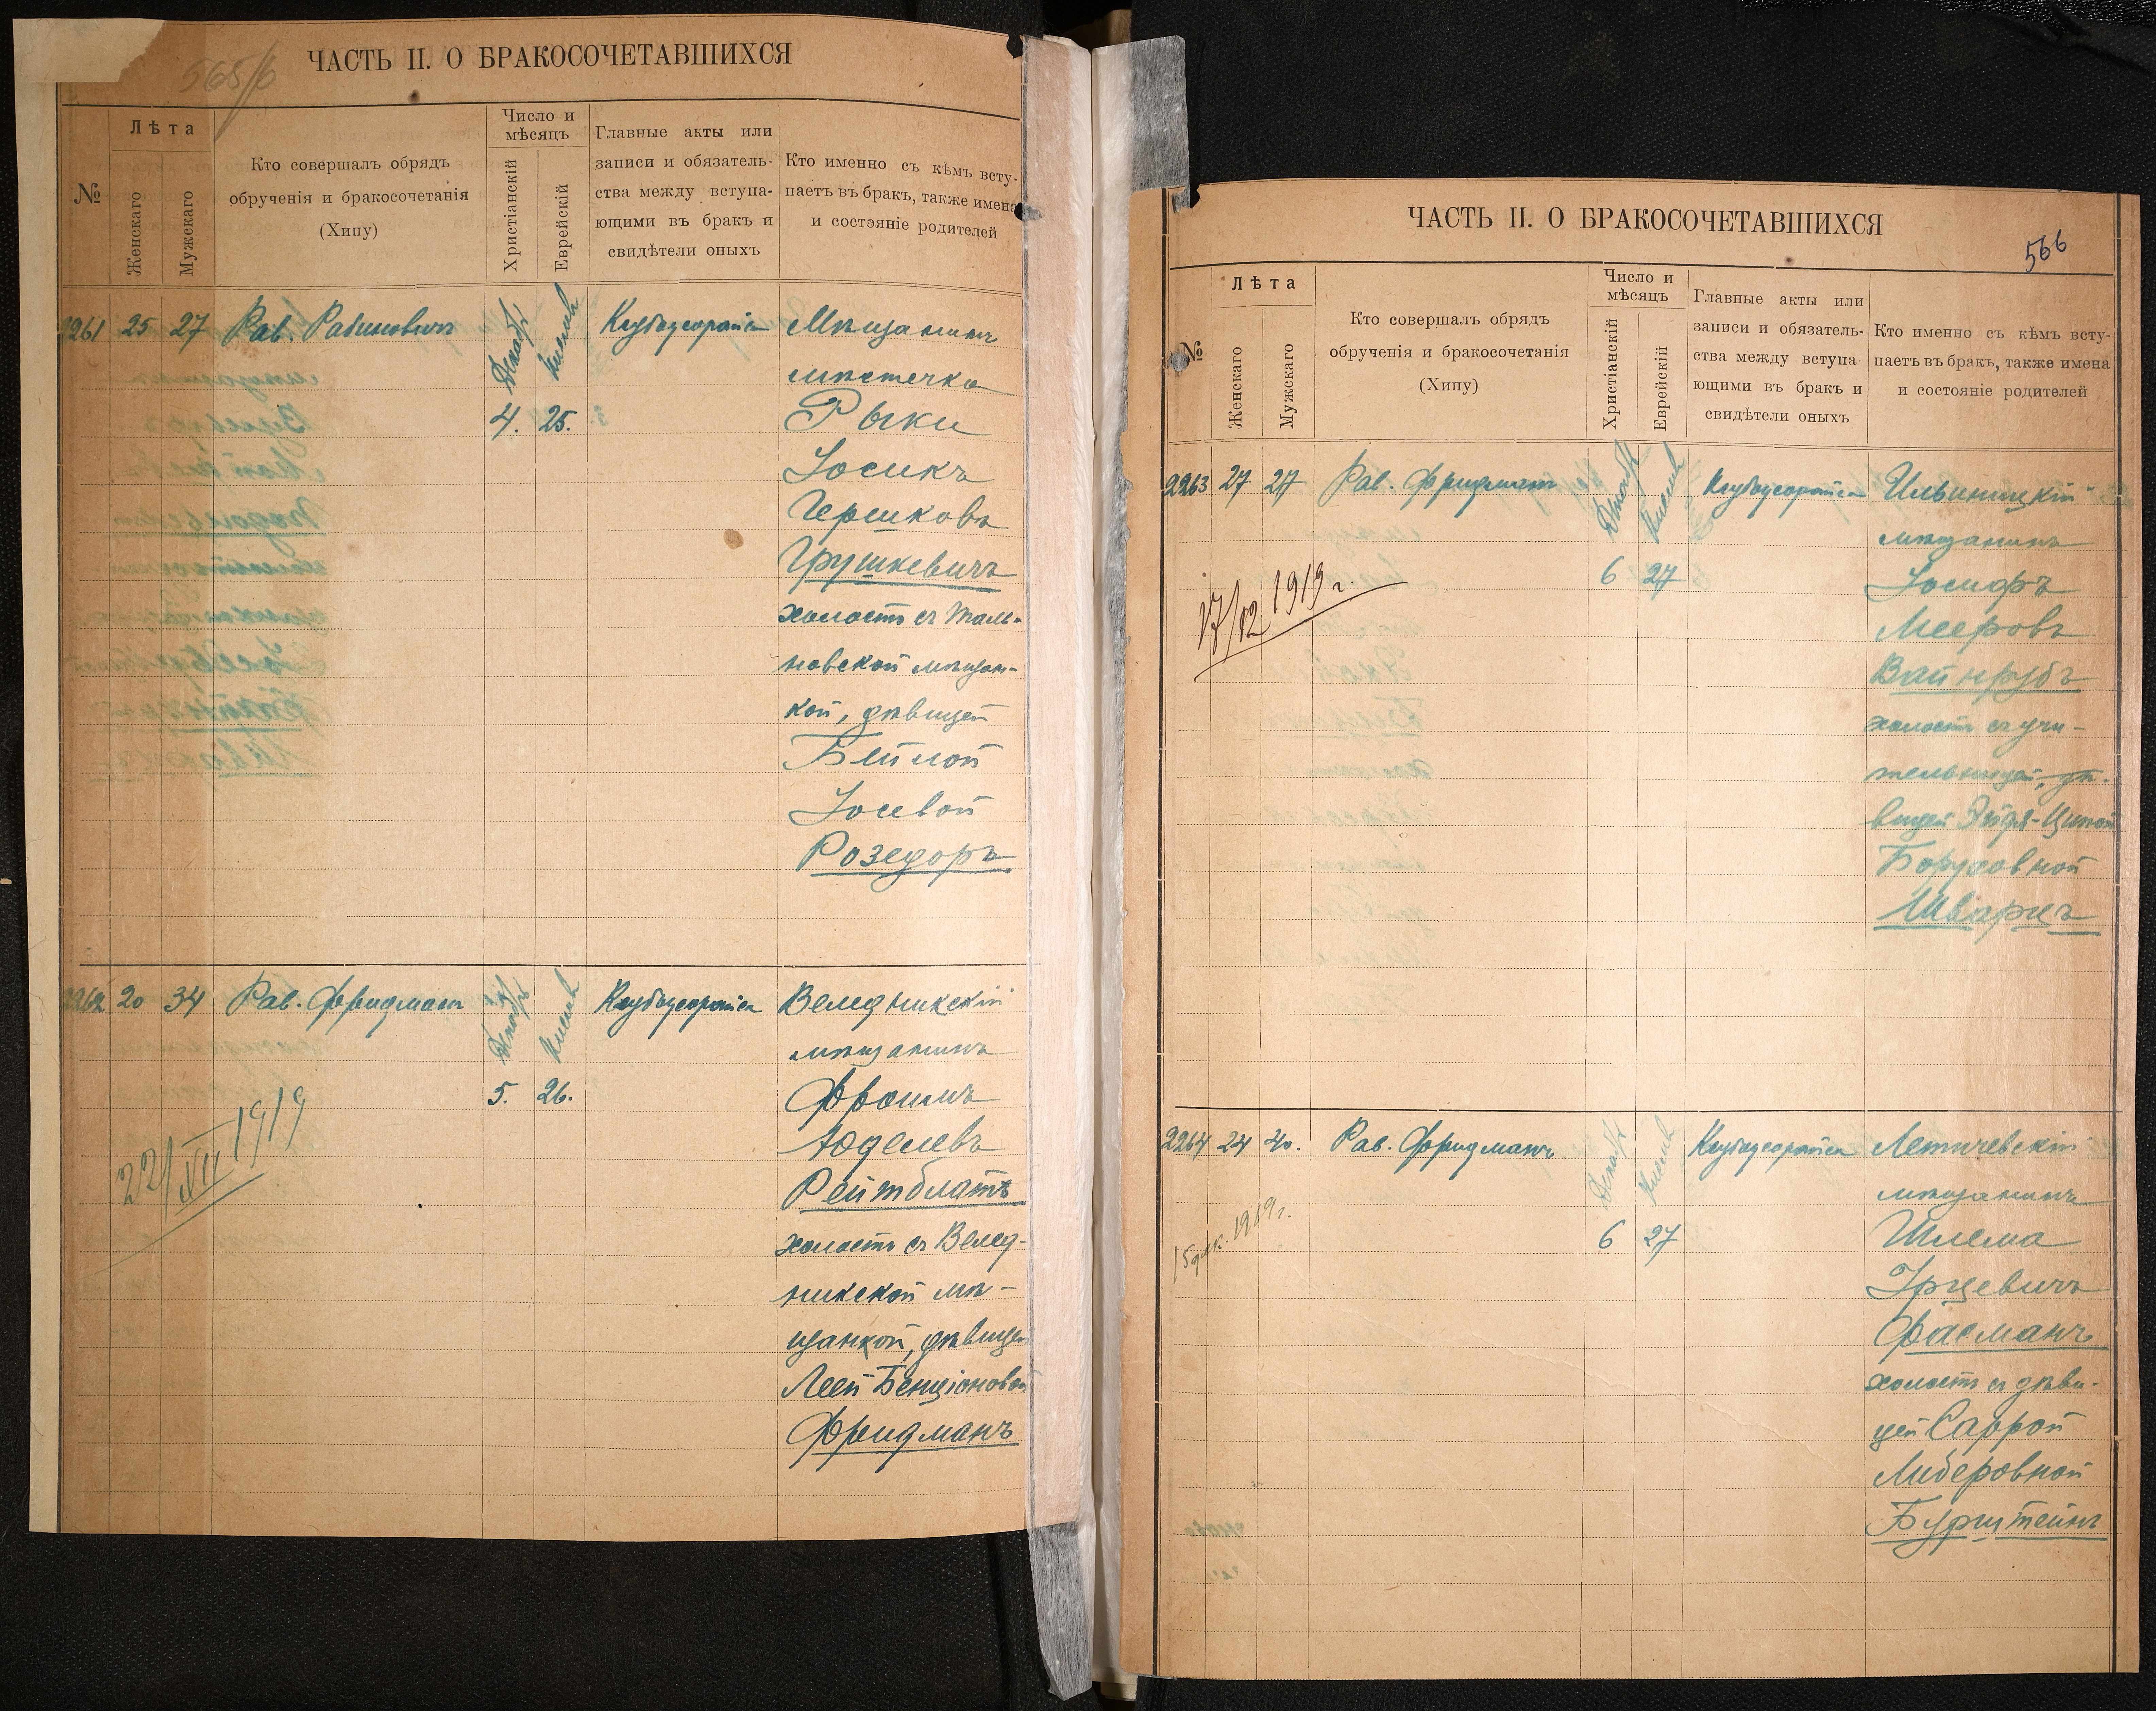 565/б
ЧАСТЬ II. О БРАКОСОЧЕТАВШИХСЯ
№
Лѣта
Женскаго
Мужскаго
Кто совершалъ обрядъ
обрученія и бракосочетанія
(Хипу)
Число и
мѣсяцъ
Христіанскій
Еврейскій
Главные акты или
записи и обязатель-
ства между вступа-
ющими въ бракъ и
свидѣтели оныхъ
Кто именно съ кѣмъ всту-
паетъ въ бракъ, также имена
и состояніе родителей
2261 25 27 Рав. Рабиновичъ Декабр Кислевъ Мѣщанинъ
мѣстечка
4. 25. Рыки
Іосикъ
Гершковъ
Грушкевичъ
холостъ съ Таль-
новской мѣщан-
кой, дѣвицей
Бейлой
Іосевой
Розедоръ
2262 20 34 Рав. Фридманъ Декабр Кислевъ Веледникскій
мѣщанинъ
5. 26. Фроимъ
Юделевъ
22/XII 1919
Рейтблатъ
холостъ съ Велед-
никской мѣ-
щанкой, дѣвицей
Леей Бенціоновой
Фридманъ
ЧАСТЬ II. О БРАКОСОЧЕТАВШИХСЯ
566
№
Лѣта
Женскаго
Мужскаго
Кто совершалъ обрядъ
обрученія и бракосочетанія
(Хипу)
Число и
мѣсяцъ
Христіанскій
Еврейскій
Главные акты или
записи и обязатель-
ства между вступа-
ющими въ бракъ и
свидѣтели оныхъ
Кто именно съ кѣмъ всту-
паетъ въ бракъ, также имена
и состояніе родителей
2263 27 27 Рав. Фридманъ Декабр Кислевъ Ильиницкій
мѣщанинъ
6 27 Іосифъ
17/12 1919 г.
Мееровъ
Вайнрубъ
холостъ съ учи-
тельницей, дѣ-
вицей Эйдя-Ципой
Боруховной
Шварцъ
2264 24 40. Рав. Фридманъ Декабр Кислевъ Летичевскій
мѣщанинъ
15 дек. 1919 г.
6 27 Шлема
Ѳасманъ
холостъ съ дѣви-
цей Саррой
Либеровной
Бурштейнъ